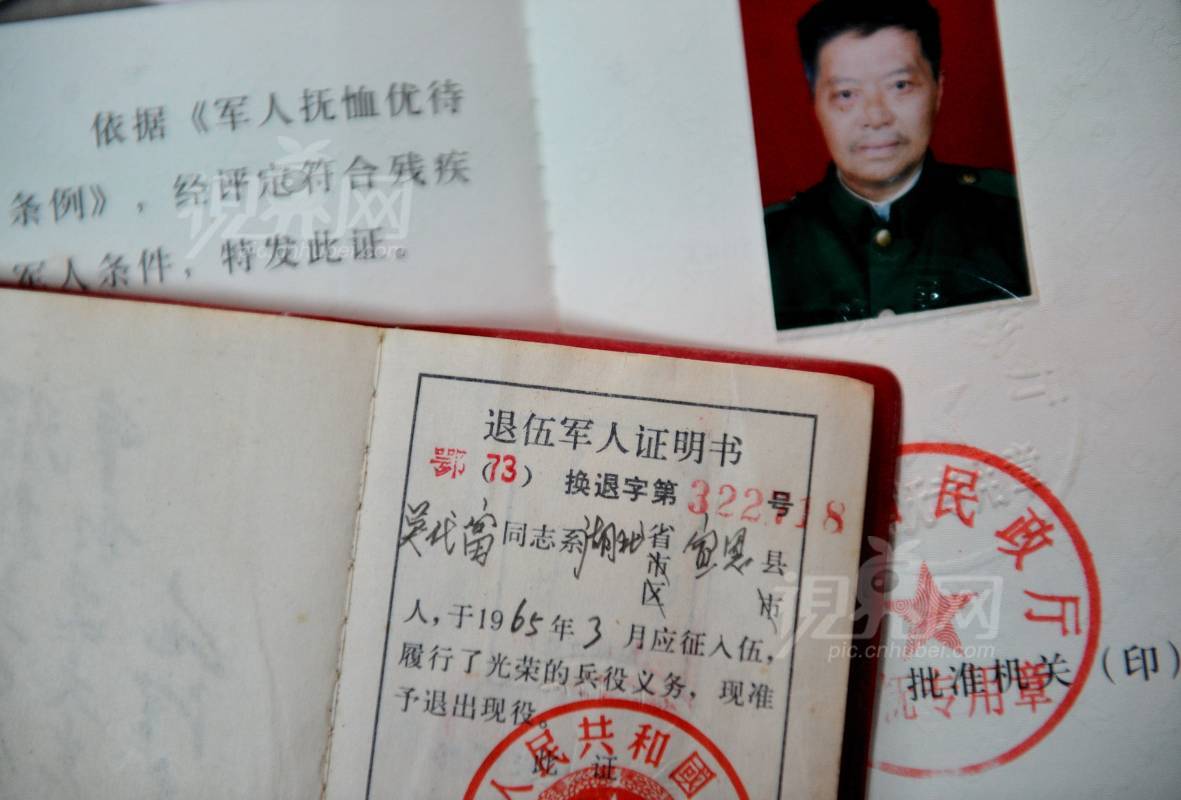 依据《军人抚恤优待
条例》，经评定符合残疾
军人条件，特发此证。
退伍军人证明书
鄂（73） 换退字第322718号
吴代富同志系湖北省市区宣恩县市
人，于1965年3月应征入伍，
履行了光荣的兵役义务，现准
予退出现役。
此证
人民共和國
民政厅
专用章
批准机关（印）
视界网
pic.cnhuber.com
视界网
pic.cnhuber.com